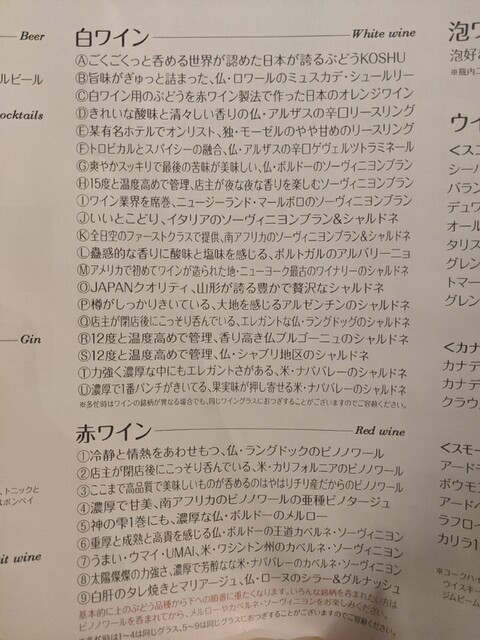 Beer
ルビール
ocktails
Gin
、トニックと
はボンベイ
it wine
白ワイン
White wine
Ⓐごくごくっと呑める世界が認めた日本が誇るぶどうKOSHU
Ⓑ旨味がぎゅっと詰まった、仏・ロワールのミュスカデ・シュールリー
Ⓒ白ワイン用のぶどうを赤ワイン製法で作った日本のオレンジワイン
Ⓓきれいな酸味と清々しい香りの仏・アルザスの辛口リースリング
Ⓔ某有名ホテルでオンリスト、独・モーゼルのやや甘めのリースリング
Ⓕトロピカルとスパイシーの融合、仏・アルザスの辛口ゲヴェルツトラミネール
Ⓖ爽やかスッキリで最後の苦味が美味しい、仏・ボルドーのソーヴィニヨンブラン
Ⓗ15度と温度高めで管理、店主が夜な夜な香りを楽しむソーヴィニヨンブラン
Ⓘワイン業界を席巻、ニュージーランド・マールボロのソーヴィニヨンブラン
Ⓙいいとこどり、イタリアのソーヴィニヨンブラン&シャルドネ
Ⓚ全日空のファーストクラスで提供、南アフリカのソーヴィニヨンブラン&シャルドネ
Ⓛ蠱惑的な香りに酸味と塩味を感じる、ポルトガルのアルバリーニョ
Ⓜアメリカで初めてワインが造られた地・ニューヨーク最古のワイナリーのシャルドネ
ⓄJAPANクオリティ、山形が誇る豊かで贅沢なシャルドネ
Ⓟ樽がしっかりきいている、大地を感じるアルゼンチンのシャルドネ
Ⓠ店主が閉店後にこっそり呑んでいる、エレガントな仏・ラングドッグのシャルドネ
Ⓡ12度と温度高めで管理、香り高き仏ブルゴーニュのシャルドネ
Ⓢ12度と温度高めで管理、仏・シャブリ地区のシャルドネ
Ⓣ力強く濃厚な中にもエレガントさがある、米・ナパバレーのシャルドネ
Ⓤ濃厚で1番パンチがきいてる、果実味が押し寄せる米・ナパバレーのシャルドネ
※多忙時はワインの銘柄が異なる場合でも、同じワイングラスにおつぎすることがございますのでご容赦ください。
赤ワイン
Red wine
①冷静と情熱をあわせもつ、仏・ラングドックのピノノワール
②店主が閉店後にこっそり呑んでいる、米・カリフォルニアのピノノワール
③ここまで高品質で美味しいものが呑めるのはやはりチリ産だからのピノノワール
④濃厚で甘美、南アフリカのピノノワールの亜種ピノタージュ
⑤神の雫1巻にも、濃厚な仏・ボルドーのメルロー
⑥重厚と成熟と高貴を感じる仏・ボルドーの王道カベルネ・ソーヴィニヨン
⑦うまい・ウマイ・UMAI、米・ワシントン州のカベルネ・ソーヴィニヨン
⑧太陽燦燦の力強さ、濃厚で芳醇なな米・ナパバレーのカベルネ・ソーヴィニヨン
⑨白肝のタレ焼きとマリアージュ、仏・ローヌのシラー&グルナッシュ
基本的に上のぶどう品種から下への順番に重たくなります。いろんな銘柄を呑まれたい方は
ピノノワールを呑まれてから、メルローやカベルネ・ソーヴィニヨンをお楽しみください。
※多忙時は1~4は同じグラス、5~9は同じグラスにおつぎすることがございますのでご容赦ください。
泡ワ
泡好き
※瓶内二
ウイ
<スコ
シーバ
バラン
デュワ
オール
タリス
グレン
トマー
グレン
<カナ
カナデ
カナデ
クラウ
<スモー
アードモ
ボウモ
アードベ
ラフロイ
カリラ1
※コークハイ
ウイスキー
ジムビーム